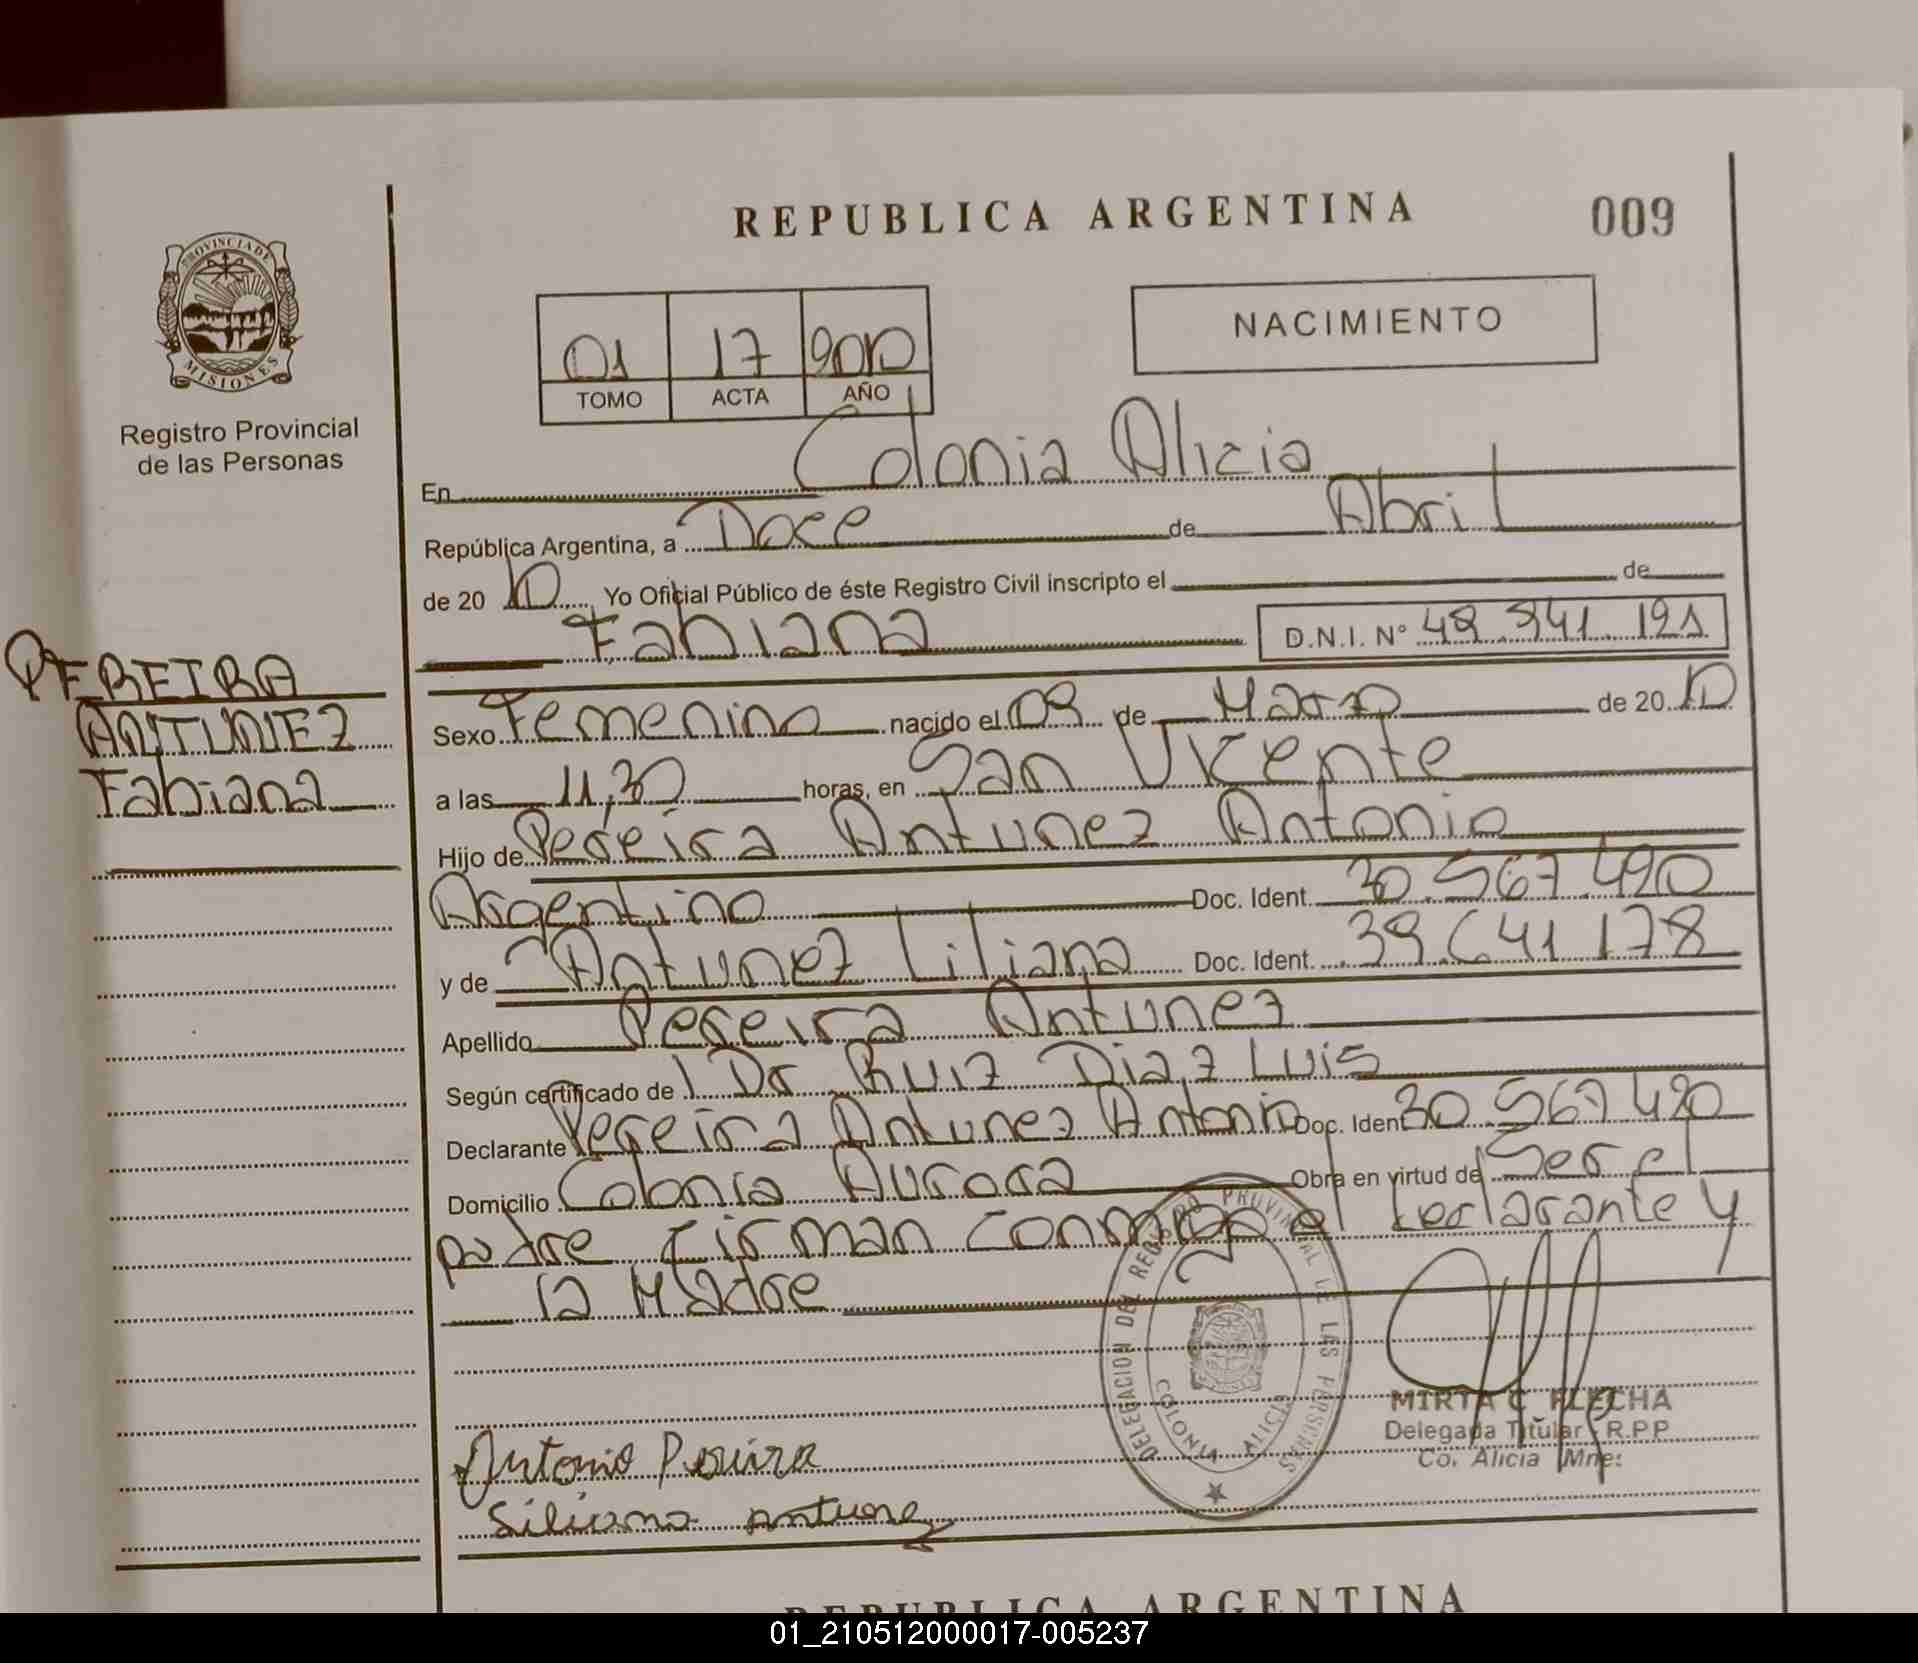 REPUBLICA ARGENTINA
009
PROVINCIA DE
MISIONES
Registro Provincial
de las Personas
01 17 2010
TOMO ACTA AÑO
NACIMIENTO
En Colonia Alicia
República Argentina, a Doce de Abril
de 20 10 Yo Oficial Público de éste Registro Civil inscripto el de
Fabiana D.N.I. Nº 121
PEREIRA
ANTUNEZ
Fabiana
Sexo Femenino nacido el 09 de Marzo de 20 10
a las 11,30 horas, en San Vicente
Hijo de Pereira Antunez Antonio
Argentino Doc. Ident. 30.567.490
y de Antunez Liliana Doc. Ident. 39.641.178
Apellido Pereira Antunez
Según certificado de Dr Ruiz Diaz Luis
Declarante Pereira Antunez Antonio Doc. Ident 30.567.490
Domicilio Colonia Aurora Obra en virtud de Ser el
padre Firman conmigo el declarante y
la Madre
DELEGACION DEL REGISTRO PROVINCIAL DE LAS PERSONAS
COLONIA ALICIA
MIRTA C FLECHA
Delegada Titular R.P.P
Co. Alicia Mnes
Antonio Pereira
Liliana antunez
REPUBLICA ARGENTINA
01_210512000017-005237